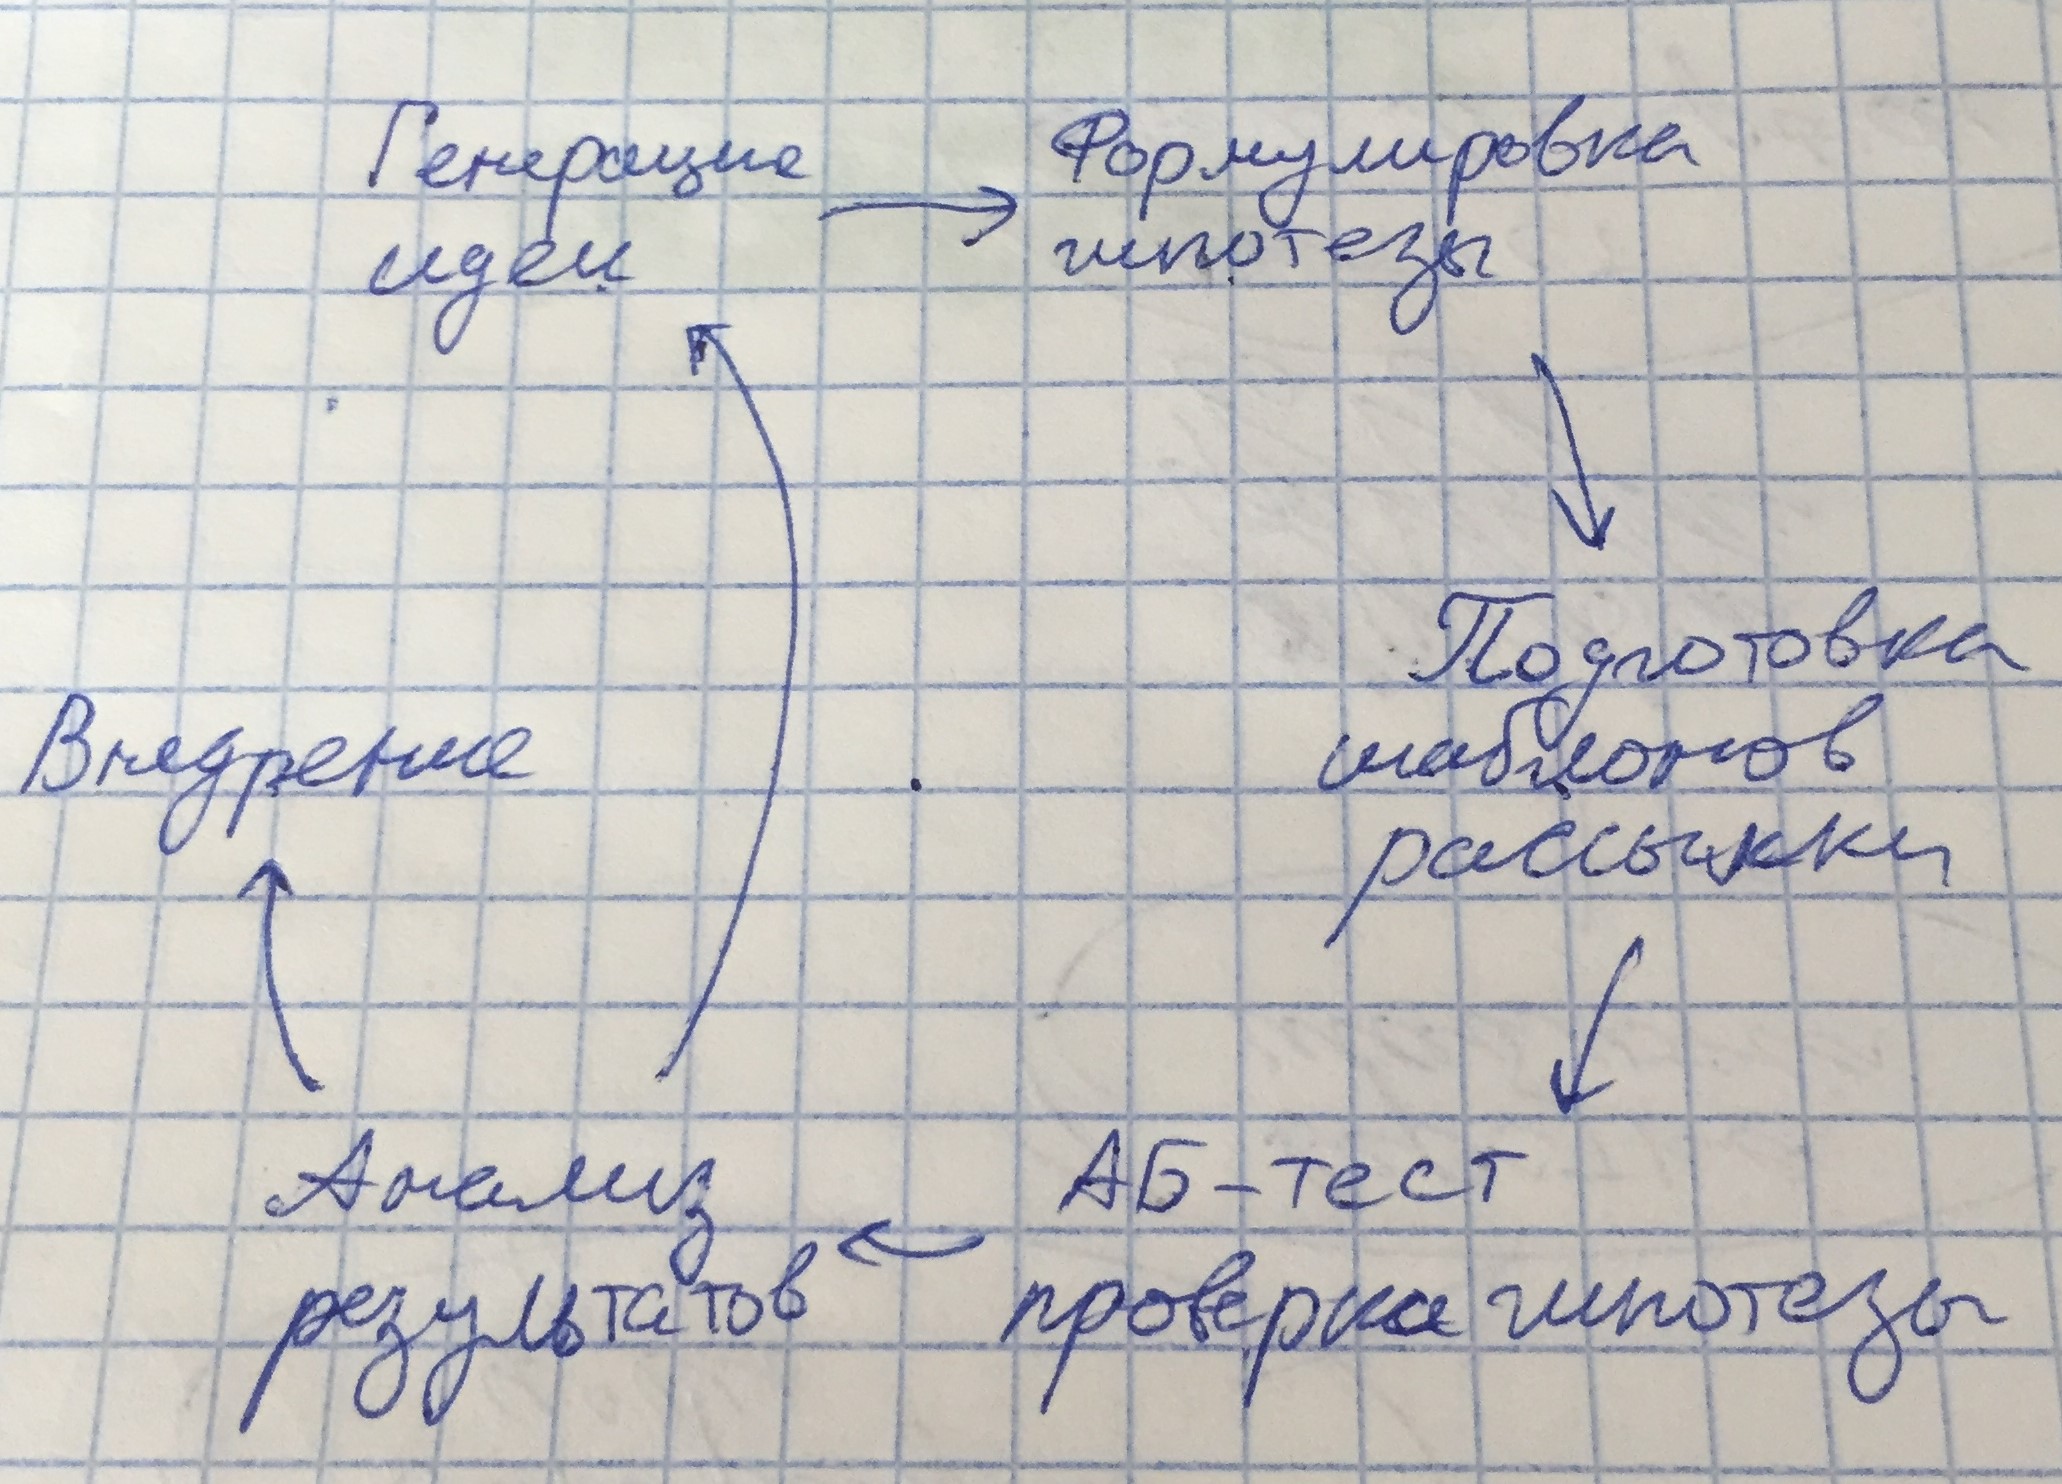 Генерация
идеи
Формулировка
гипотезы
Подготовка
шаблонов
рассылки
АБ-тест
проверка гипотезы
Анализ
результатов
Внедрение